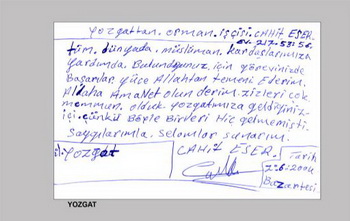 Yozgattan. orman. işçisi. CAHİT ESER.
tüm. dünyada. müslüman. kardaşlarımıza
yardımda. Bulunduğunuz. için görevinizde
Başarılar. yüce Allahtan temeni Ederim.
Allaha AmaNet olun derim. sizleri çok
memnun. olduk yozgatımıza geldiğiniz
içi. çünkü Böyle Birleri Hiç gelmemişti.
saygılarımla. selamlar sunarım.
YOZgat CAHİT ESER. Tarih
2.6.2004
Bazartesi
YOZGAT